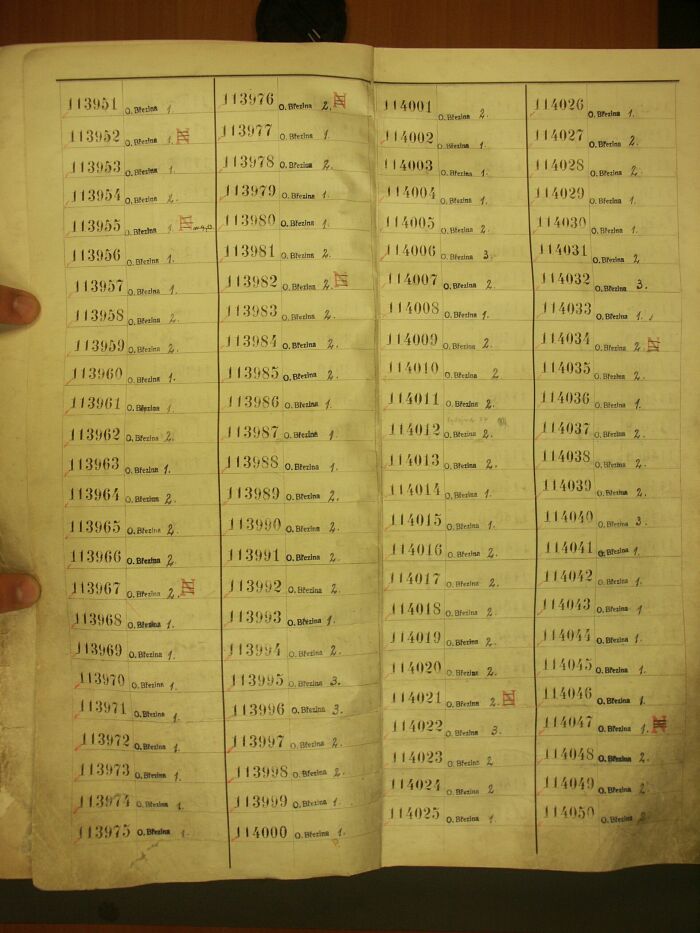 113951 O. Březina 1.
113952 O. Březina 1. IV
113953 O. Březina 1.
113954 O. Březina 2.
113955 O. Březina 1. IV
113956 O. Březina 1.
113957 O. Březina 1.
113958 O. Březina 2.
113959 O. Březina 2.
113960 O. Březina 1.
113961 O. Březina 1.
113962 O. Březina 2.
113963 O. Březina 1.
113964 O. Březina 2.
113965 O. Březina 2.
113966 O. Březina 2.
113967 O. Březina 2.
113968 O. Březina 1.
113969 O. Březina 1.
113970 O. Březina 1.
113971 O. Březina 1.
113972 O. Březina 1.
113973 O. Březina 1.
113974 O. Březina 1.
113975 O. Březina 1.
113976 O. Březina 2.
113977 O. Březina 1.
113978 O. Březina 2.
113979 O. Březina 1.
113980 O. Březina 1.
113981 O. Březina 2.
113982 O. Březina 2.
113983 O. Březina 2.
113984 O. Březina 2.
113985 O. Březina 2.
113986 O. Březina 1.
113987 O. Březina 1.
113988 O. Březina 1.
113989 O. Březina 2.
113990 O. Březina 2.
113991 O. Březina 2.
113992 O. Březina 2.
113993 O. Březina 1.
113994 O. Březina 2.
113995 O. Březina 3.
113996 O. Březina 3.
113997 O. Březina 2.
113998 O. Březina 2.
113999 O. Březina 1.
114000 O. Březina 1.
114001 O. Březina 2.
114002 O. Březina 1.
114003 O. Březina 1.
114004 O. Březina 1.
114005 O. Březina 2.
114006 O. Březina 3.
114007 O. Březina 2
114008 O. Březina 1.
114009 O. Březina 2.
114010 O. Březina 2
114011 O. Březina 2.
114012 O. Březina 2.
114013 O. Březina 2.
114014 O. Březina 1.
114015 O. Březina 1.
114016 O. Březina 2.
114017 O. Březina 2.
114018 O. Březina 2.
114019 O. Březina 2.
114020 O. Březina 2.
114021 O. Březina 2. IV
114022 O. Březina 3.
114023 O. Březina 2
114024 O. Březina 2
114025 O. Březina 1.
114026 O. Březina 1.
114027 O. Březina 2.
114028 O. Březina 2.
114029 O. Březina 1.
114030 O. Březina 1.
114031 O. Březina 2
114032 O. Březina 3.
114033 O. Březina 1.
114034 O. Březina 2
114035 O. Březina 2.
114036 O. Březina 1.
114037 O. Březina 2.
114038 O. Březina 2.
114039 O. Březina 2.
114040 O. Březina 3.
114041 O. Březina 1.
114042 O. Březina 1.
114043 O. Březina 1
114044 O. Březina 1.
114045 O. Březina 1.
114046 O. Březina 1.
114047 O. Březina 1.
114048 O. Březina 2.
114049 O. Březina 2.
114050 O. Březina 2